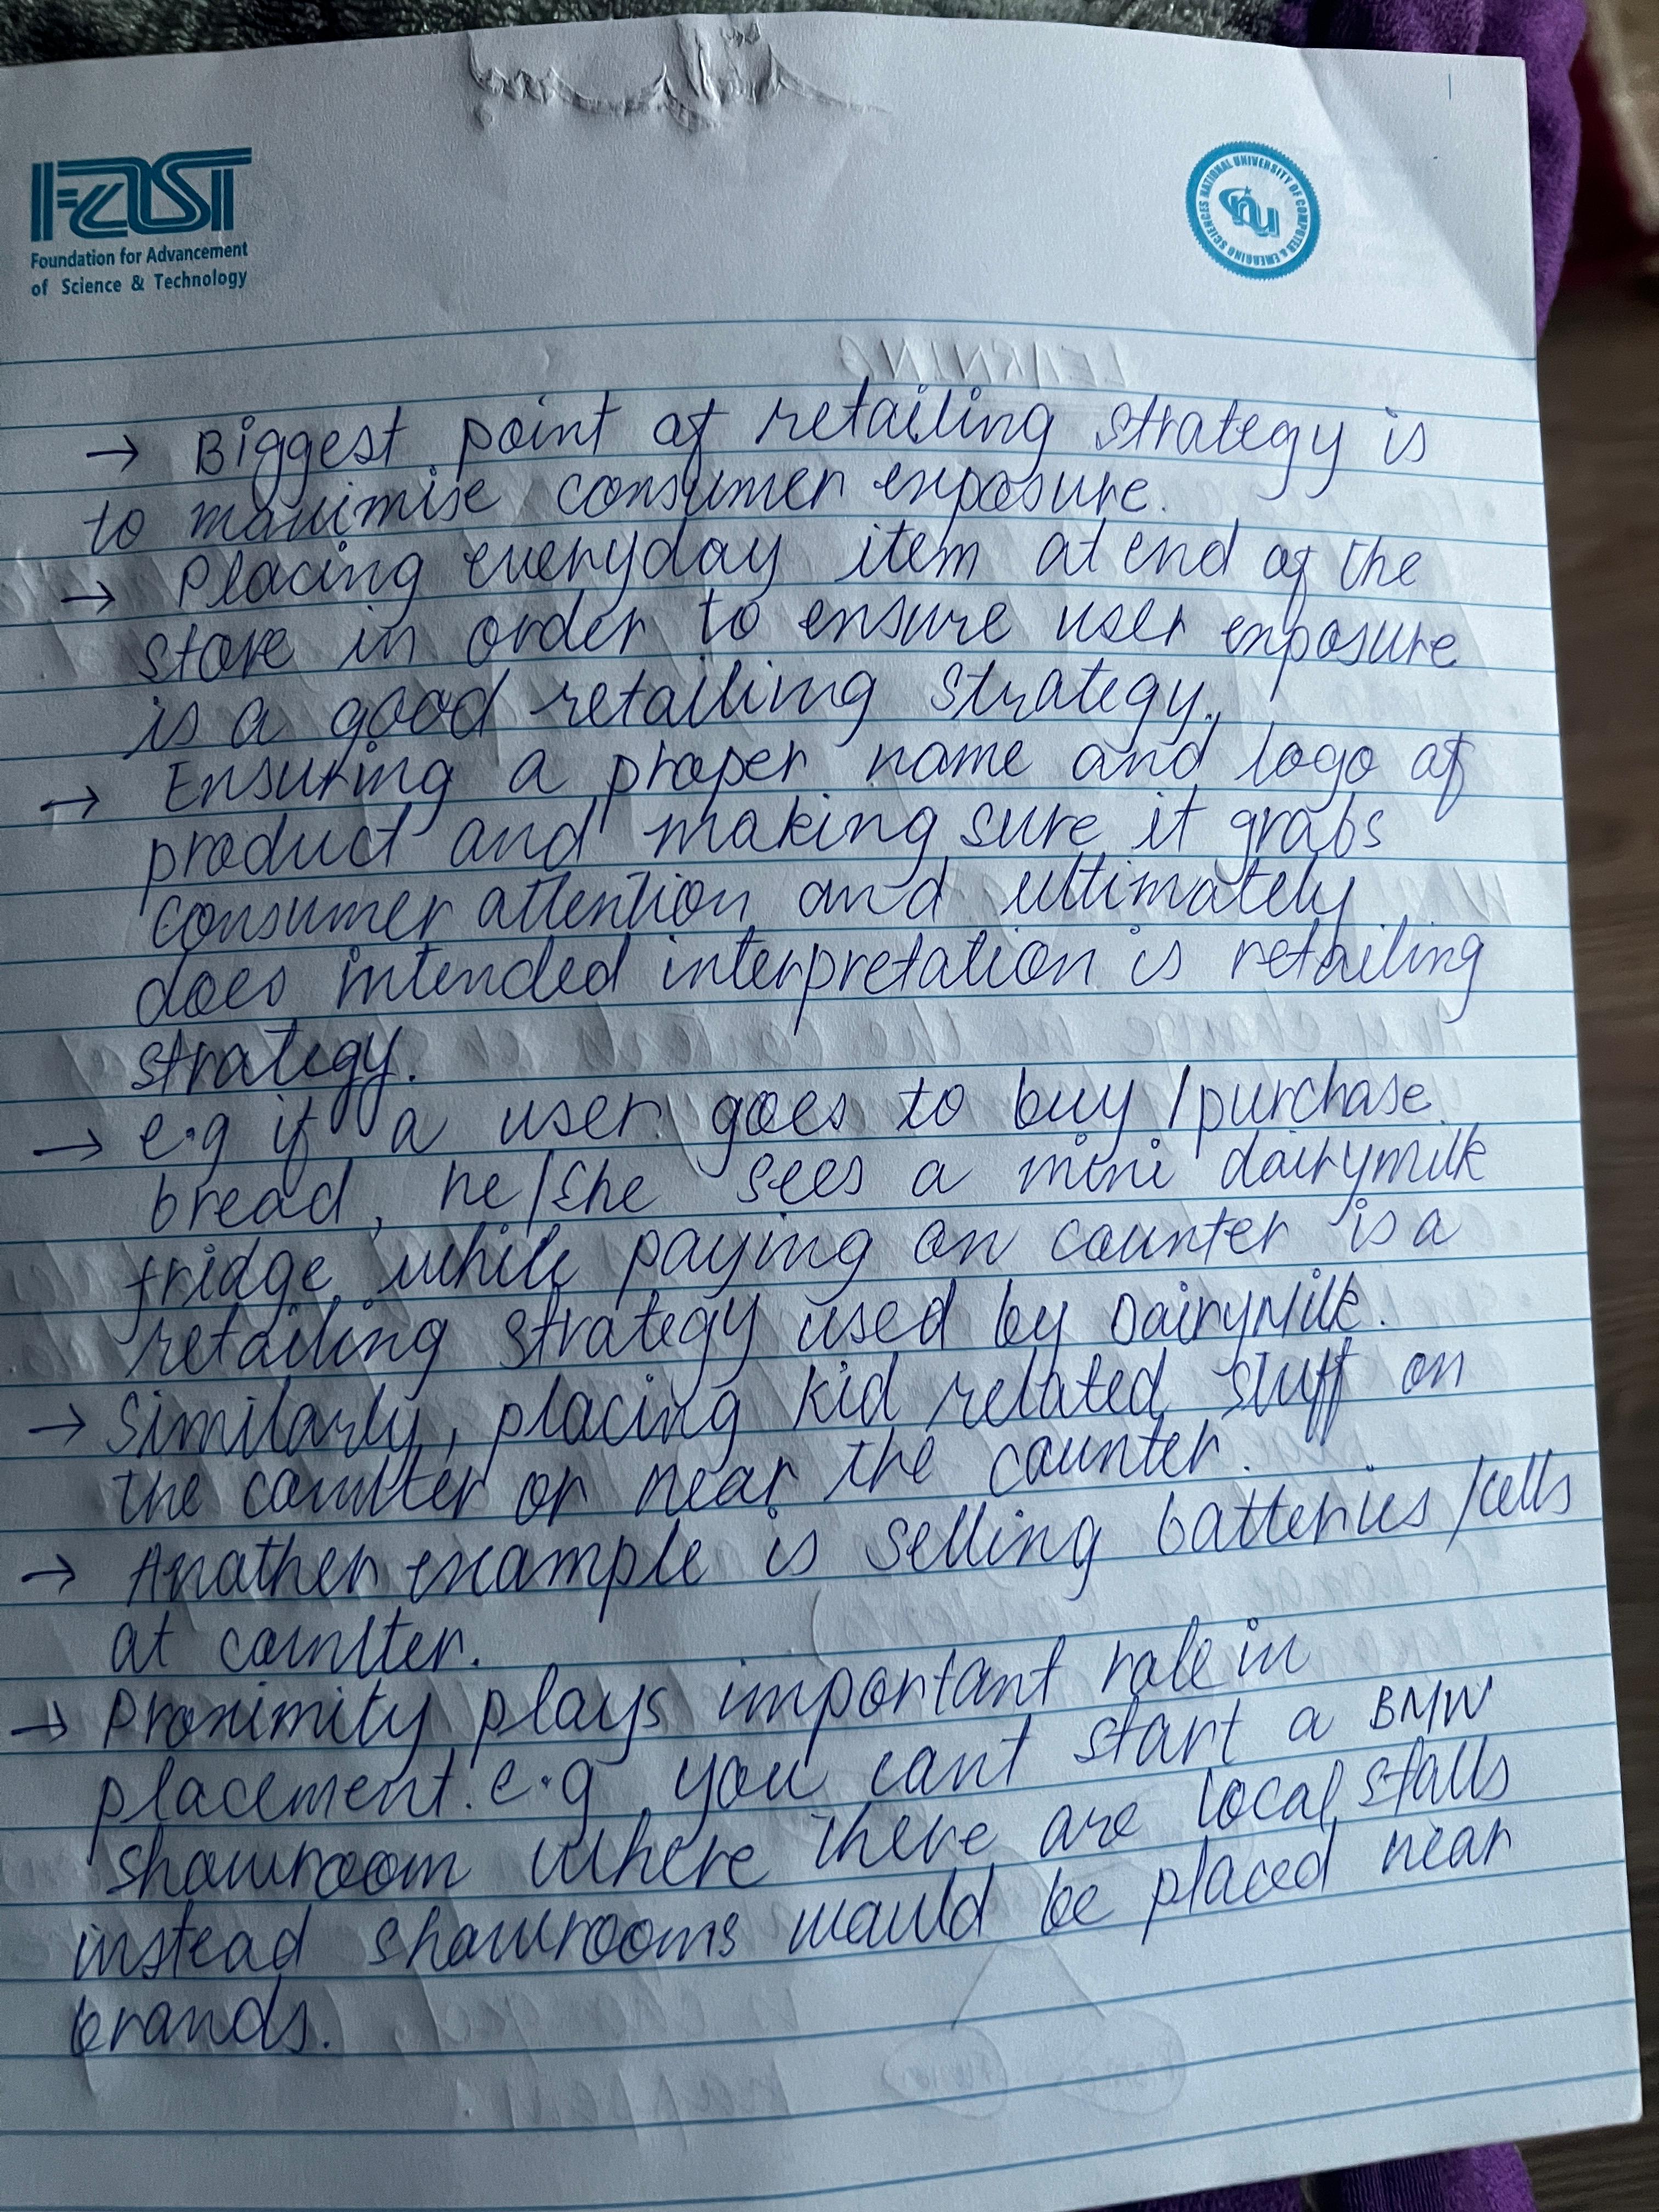 FAST
Foundation for Advancement
of Science & Technology
NATIONAL UNIVERSITY OF COMPUTER & EMERGING SCIENCES
nu
→ Biggest point of retailing strategy is
to maximise consumer exposure.
→ Placing everyday item at end of the
store in order to ensure user exposure
is a good retailing strategy.
→ Ensuring a proper name and logo of
product and making sure it grabs
consumer attention and ultimately
does intended interpretation is retailing
strategy.
→ e.g if a user goes to buy / purchase
bread, he/she sees a mini dairymilk
fridge while paying on counter is a
retailing strategy used by DairyMilk.
→ Similarly, placing kid related stuff on
the counter or near the counter.
→ Another example is selling batteries /cells
at counter.
→ Proximity plays important role in
placement. e.g you cant start a BMW
showroom where there are local stalls
instead showrooms would be placed near
brands.